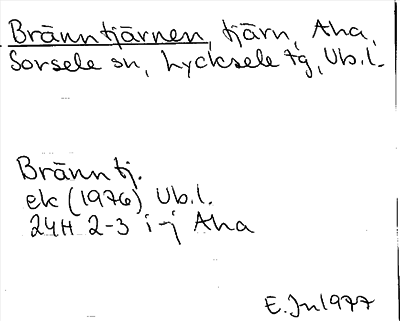 Bränntjärnen, tjärn, Aha,
Sorsele sn, Lycksele tg, Vb.l.
Bränntj.
ek (1976) Vb.l.
24H 2-3 i-j Aha
E.Jn 1977